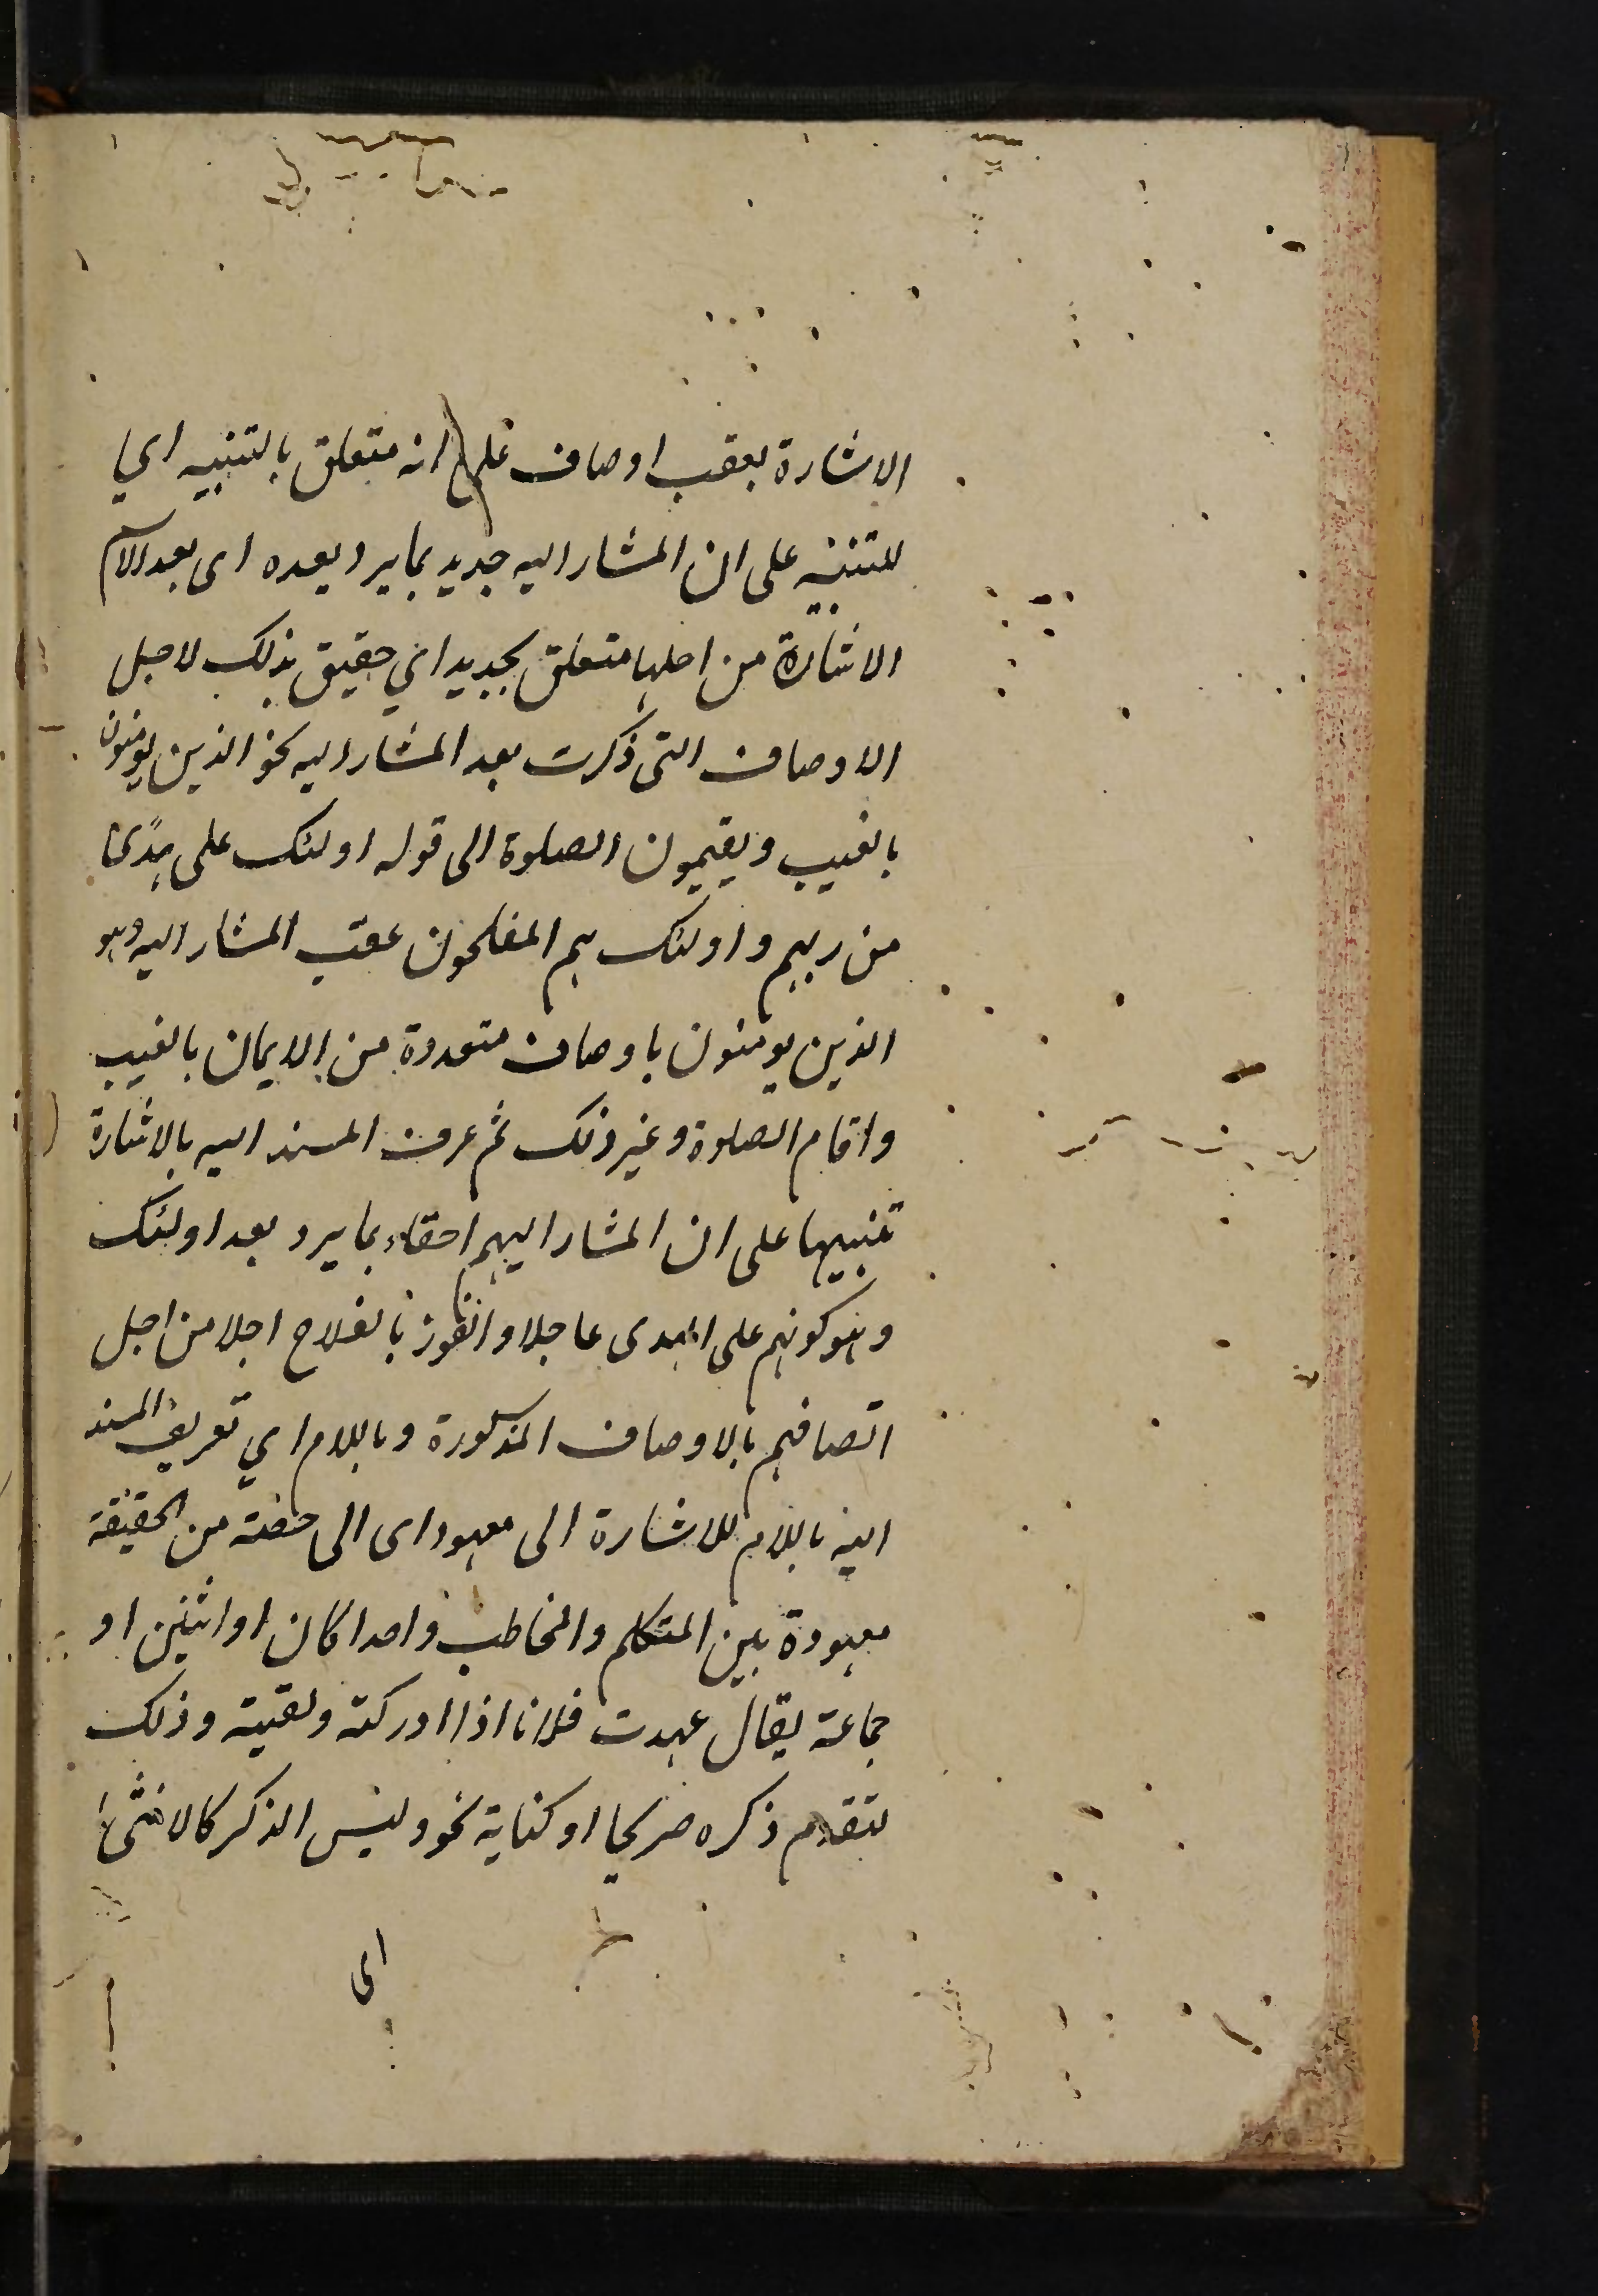 الاشارة بعقب اوصاف على انه متعلق بالتنبيه اي
للتنبيه على ان المشار اليه جدير بما يرد بعده اى بعد الاسم
الاشارة من اجلها متعلق بجدير اي حقيق بذلك لاجل
الاوصاف التى ذكرت بعد المشار اليه نحو الذين يومنون
بالغيب ويقيمون الصلوة الى قوله اولئك على هدًى
من ربهم واولئك هم المفلحون عقب المشار اليه وهو
الذين يومنون باوصاف متعددة من الايمان بالغيب
واقام الصلوة وغير ذلك ثم عرف المسند اليه بالاشارة
تنبيها على ان المشار اليهم احقاء بما يرد بعد اولئك
وهو كونهم على الهدى عاجلا والفوز بالفلاح اجلا من اجل
اتصافهم بالاوصاف المذكورة وباللام اي تعريف المسند
اليه باللام للاشارة الى معهود اى الى حصة من الحقيقة
معهودة بين المتكلم والمخاطب واحدا كان او اثنين او
جماعة يقال عهدت فلانا اذا ادركته ولقيته وذلك
لتقدم ذكره صريحا او كناية نحو وليس الذكر كالانثى
اى